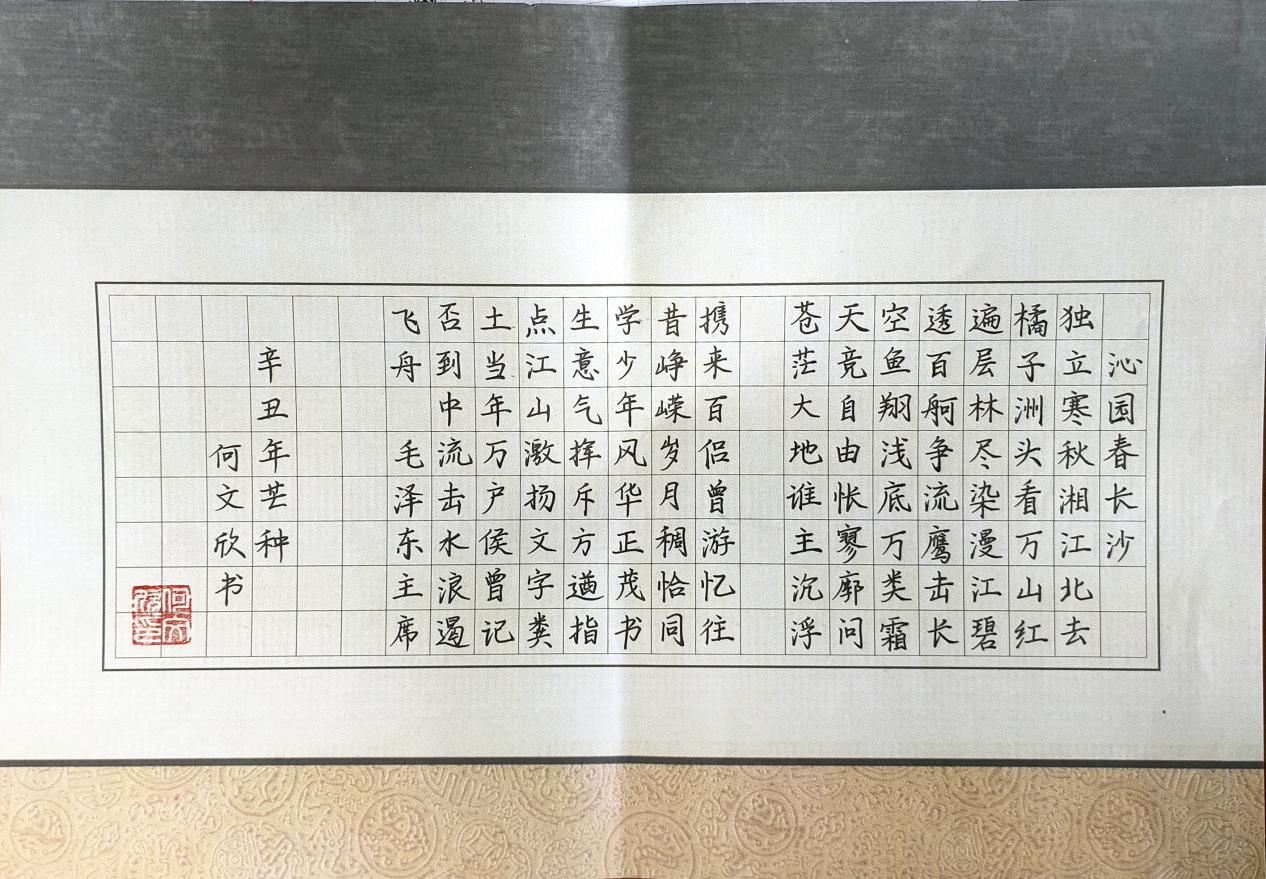 沁园春长沙
独立寒秋湘江北去
橘子洲头看万山红
遍层林尽染漫江碧
透百舸争流鹰击长
空鱼翔浅底万类霜
天竞自由怅寥廓问
苍茫大地谁主沉浮
携来百侣曾游忆往
昔峥嵘岁月稠恰同
学少年风华正茂书
生意气挥斥方遒指
点江山激扬文字粪
土当年万户侯曾记
否到中流击水浪遏
飞舟 毛泽东主席
辛丑年芒种
何文欣书
何文欣印